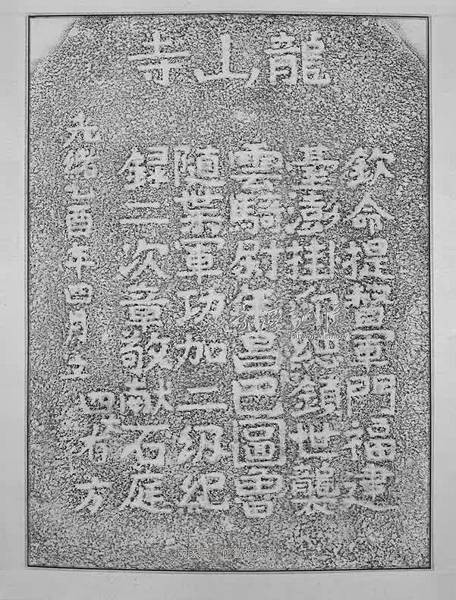 龍山寺
欽命提督軍門福建
臺澎掛印總鎮世襲
雲騎尉年昌巴圖魯
隨帶軍功加二級紀
錄三次章敬獻石庭
四百方
光緒乙酉年四月立